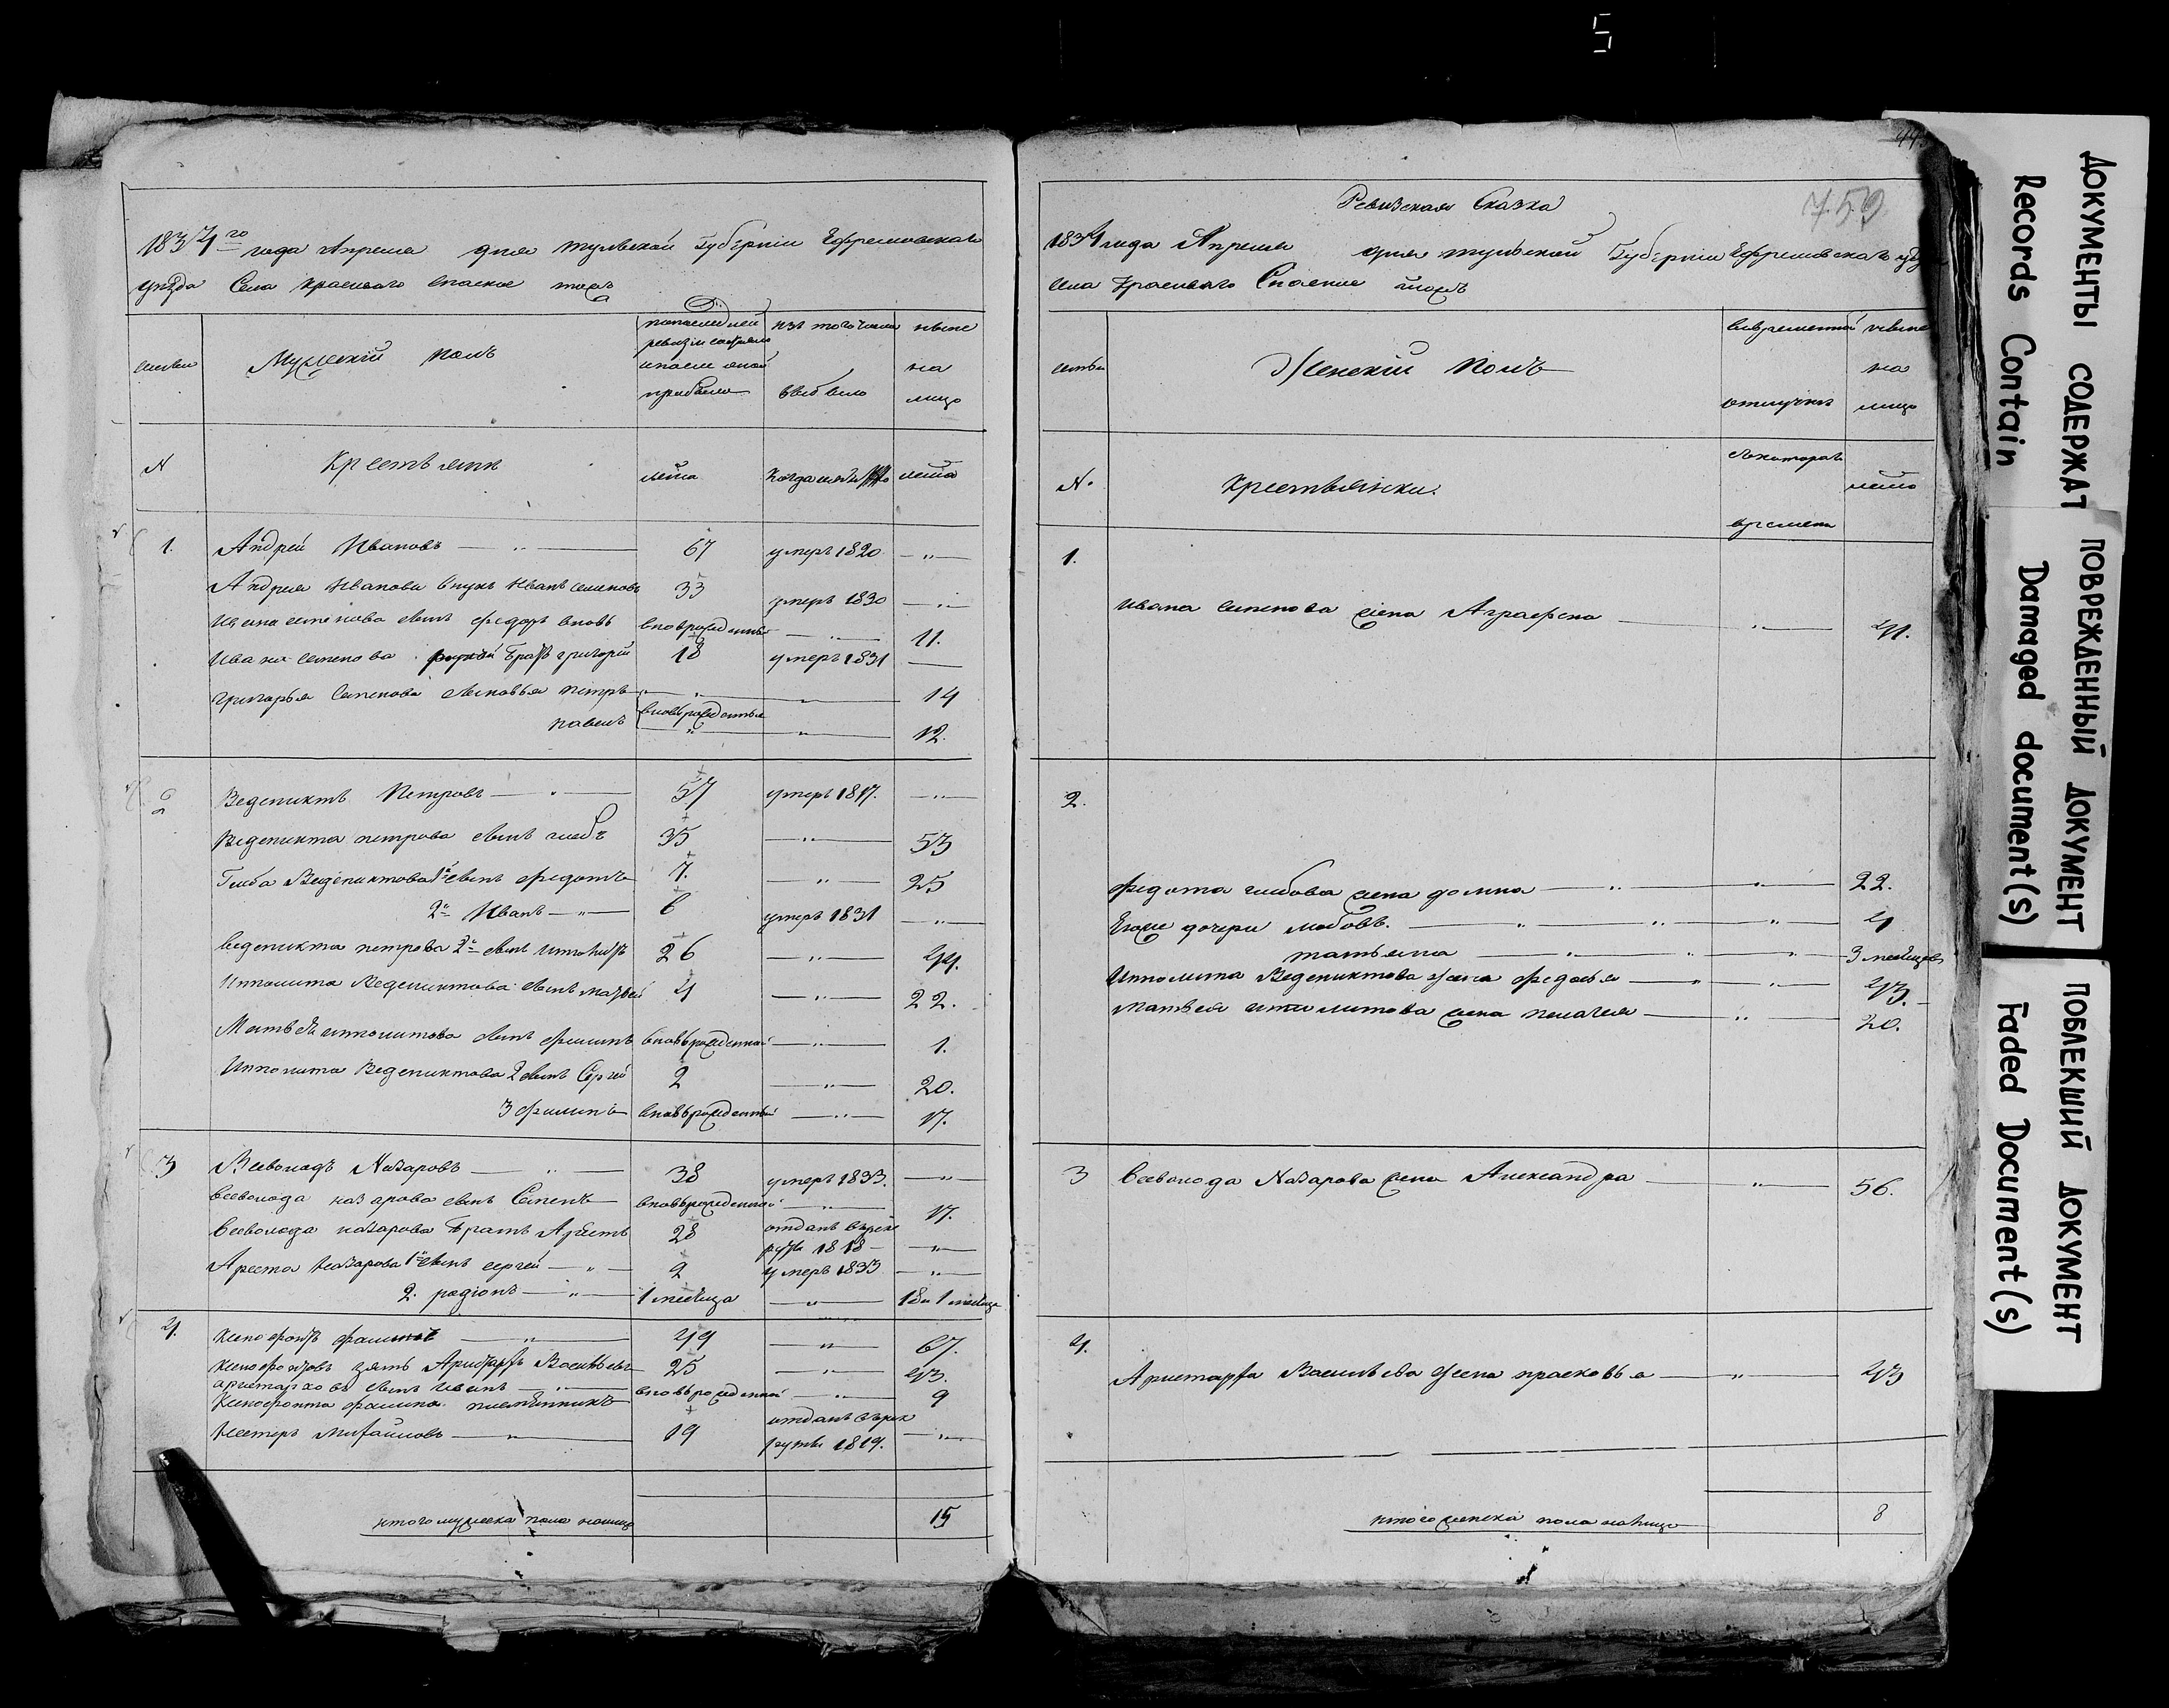 5
1834го года Апреля дня Тульской Губернии Ефремовскаго
уезда Села Красиваго Спаское тожъ
семьи
Мужеский полъ
по последней
ревизии состояло
и после оной
прибыло
изъ того числа
выбыло
ныне
на
лицо
N
Крестьяне
лета
Когда именно
лета
1. Андрей Ивановъ 67 умеръ 1820
Андрея Иванова внукъ Иванъ Семеновъ 33 умеръ 1830
Ивана Семенова сынъ Федоръ вновь вновьрожденный 11.
Ивана Семенова братъ григорий 18 умеръ 1831
Григорья Семенова сыновья петръ 14
вновьрожденные
павелъ 12.
2 Веденихтъ Петровъ 57 умеръ 1817.
Веденикта петрова сынъ глебъ 35 53
Глеба Веденихтова 1й сынъ федотъ 7. 25
2й Иванъ 6 умеръ 1831
Веденикта петрова 2й сынъ Иполитъ 26 44.
Ипполита Веденихтова сынъ матвей 4 22.
Матвея ипполитова сынъ филипъ вновьрожденной 1.
Ипполита Веденихтова 2 сынъ Сергей 2 20.
3 филипъ вновьрожденный 17.
3 Всеволодъ Назаровъ 38 умеръ 1833.
Всеволода назарова сынъ Семенъ вновьрожденной 17.
Всеволода назарова братъ Арестъ 28 отданъ въ рек
руты 1818
Ареста Назарова 1й сынъ сергей 2 умеръ 1833
2. радионъ 1 месеца 18 и 1 месеца
4. Ксенофонтъ фоминъ 49 67.
Ксенофонтовъ зять Аристархъ Васильевъ 25 43.
аристарховъ сынъ Иванъ вновьрожденной 9
Ксенофонта фомина племянникъ
Нестеръ Михайловъ 19 отданъ въ рек
руты 1819.
итого мужеска пола налицо 15
759
Ревизская Сказка
1834 года Апреля дня тульской Губернии Ефремовскаго
села Красиваго Спаское тожъ
семьи
Женский Полъ
во временной
отлучке
ныне
на
лицо
No
Крестьянки.
съ котораго
времени
лета
1.
Ивана семенова жена Аграфена 41.
2.
федота глебова жена домна 22.
Ево же дочери любовь. 4
татьяна 3 месецовъ
Ипполита Веденихтова жена федосья 43.
матвея ипполитова жена пелагея 20.
3 Всеволода Назарова жена Александра 56.
4.
Аристарха Васильева жена прасковья 43
итого женска пола налицо 8
ДОКУМЕНТЫ СОДЕРЖАТ
Records Contain
ПОВРЕЖДЕННЫЙ ДОКУМЕНТ
Damaged document(s)
ПОБЛЕКШИЙ ДОКУМЕНТ
Faded Document(s)